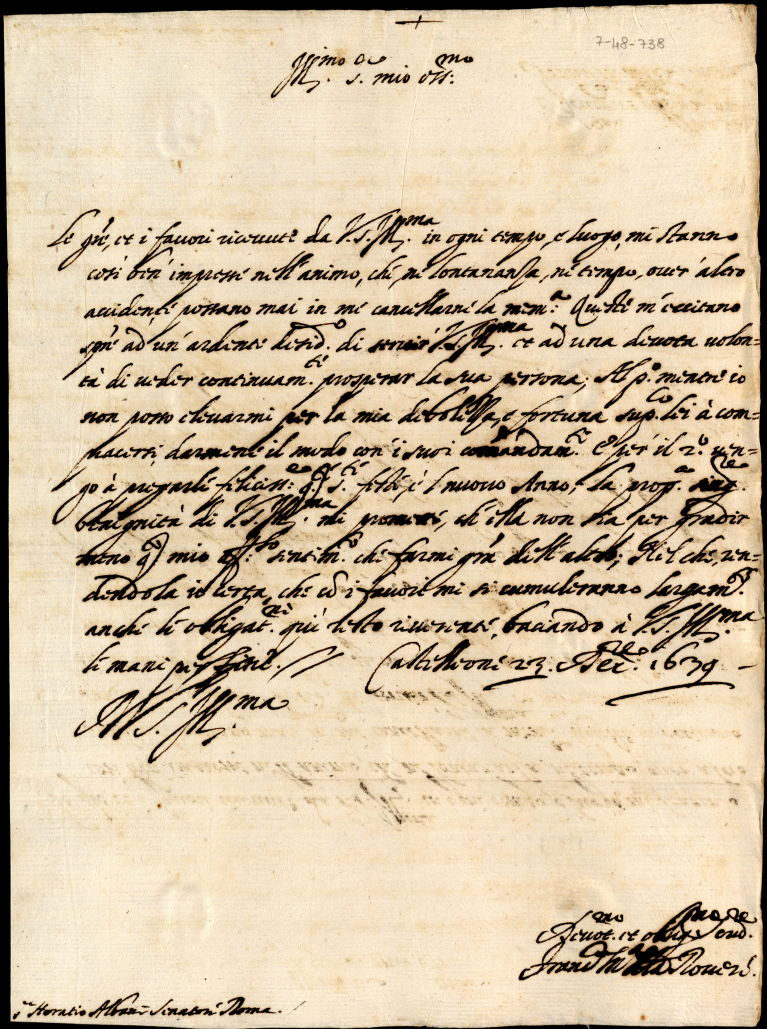 7-48-738
Ill.mo S. mio oss.mo
Le gre, et i favori ricevute da V.S. Ill.ma in ogni tempo, e luogo, mi stanno
così ben' impresse nell'animo, che ne lontananza, ne tempo, over' altro
accidente possano mai in me cancellarne la mem.a Queste m'eccitano
ad un' ardente desid.o di servir V.S. Ill.ma et ad una devota volon=
tà di veder continuam.te prosperar la sua persona; mentre io
non posso elevarmi per la mia debolezza, e fortuna sup.co lei à com=
piacersi, darmene il modo con' i suoi comandam.ti E per il 2.o ven=
go à pregarle feliciss.e q S.te feste, e 'l nuovo Anno; la prop.a
benignità di V.S. Ill.ma mi promette, ch'ella non sia per gradir
meno q mio sentim.to che farmi gra dell'altro; Nel che, ren=
dendola io certa, che cò i favori mi si cumuleranno largam.te
anche le obligat.ni qui resto riverente, baciando à V.S. Ill.ma
le mani per fine. // Castelleone 23. Xbre. 1639
Di V.S. Ill.ma
Devot.mo et oblig.mo Serv.re
della Rovere
Horatio Albani Senatore Roma.